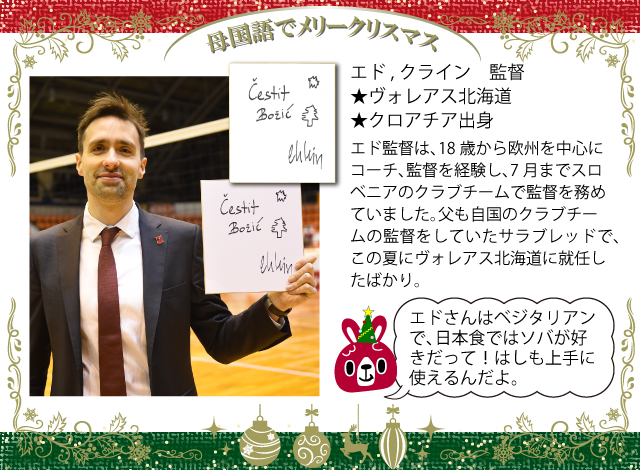 母国語でメリークリスマス
Čestit
Božić
Čestit
Božić
エド , クライン　監督
★ヴォレアス北海道
★クロアチア出身
エド監督は、18 歳から欧州を中心に
コーチ、監督を経験し、7 月までスロ
ベニアのクラブチームで監督を務め
ていました。父も自国のクラブチー
ムの監督をしていたサラブレッドで、
この夏にヴォレアス北海道に就任し
たばかり。
エドさんはベジタリアン
で、日本食ではソバが好
きだって！はしも上手に
使えるんだよ。